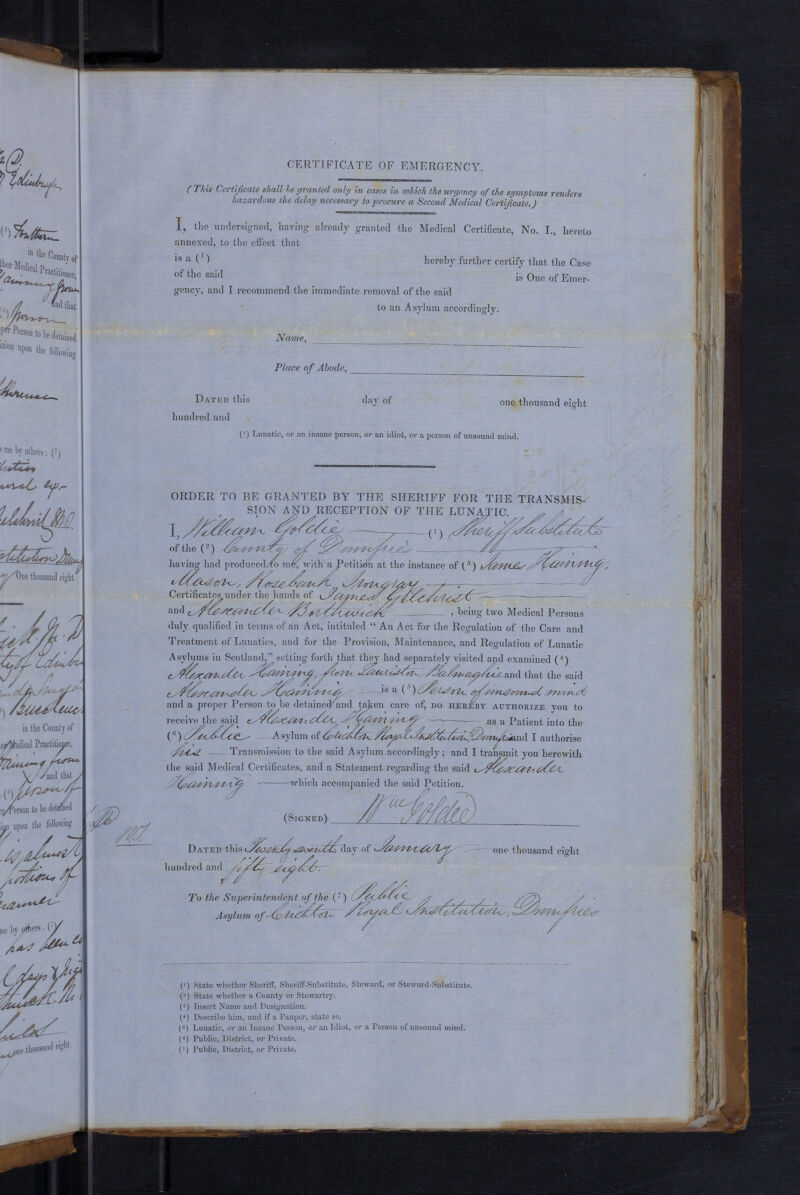 CERTIFICATE OF EMERGENCY.
(This Certificate shall be granted only in cases in which the urgency of the symptoms renders
hazardous the delay necessary to procure a Second Medical Certificate.)
I, the undersigned, having already granted the Medical Certificate, No. I., hereto
annexed, to the effect that
is a (1) hereby further certify that the Case
of the said is One of Emer-
gency, and I recommend the immediate removal of the said
to an Asylum accordingly.
Name,
Place of Abode,
DATED this day of one thousand eight
hundred and
(1) Lunatic, or an insane person, or an idiot, or a person of unsound mind.
ORDER TO BE GRANTED BY THE SHERIFF FOR THE TRANSMIS-
SION AND RECEPTION OF THE LUNATIC.
I, William Goldie (1) Sheriff Substitute
of the (2) County of Dumfries
having had produced to me, with a Petition at the instance of (3) James Haining,
Mason, Rosebank, Irongray
Certificates under the hands of James Gilchrist
and Alexander Borthwick, being two Medical Persons
duly qualified in terms of an Act, intituled "An Act for the Regulation of the Care and
Treatment of Lunatics, and for the Provision, Maintenance, and Regulation of Lunatic
Asylums in Scotland," setting forth that they had separately visited and examined (4)
Alexander Haining, from Lauriston Balmaghie and that the said
Alexander Haining is a (5) Person of unsound mind
and a proper Person to be detained and taken care of, DO HEREBY AUTHORIZE you to
receive the said Alexander Haining as a Patient into the
(6) Public Asylum of Crichton Royal Institution, Dumfries and I authorise
his Transmission to the said Asylum accordingly; and I transmit you herewith
the said Medical Certificates, and a Statement regarding the said Alexander
Haining which accompanied the said Petition.
(SIGNED) Wm Goldie
DATED this Twenty seventh day of January one thousand eight
hundred and fifty eight.
To the Superintendent of the (7) Public
Asylum of Crichton Royal Institution, Dumfries
(1) State whether Sheriff, Sheriff-Substitute, Steward, or Steward-Substitute.
(2) State whether a County or Stewartry.
(3) Insert Name and Designation.
(4) Describe him, and if a Pauper, state so.
(5) Lunatic, or an Insane Person, or an Idiot, or a Person of unsound mind.
(6) Public, District, or Private.
(7) Public, District, or Private.